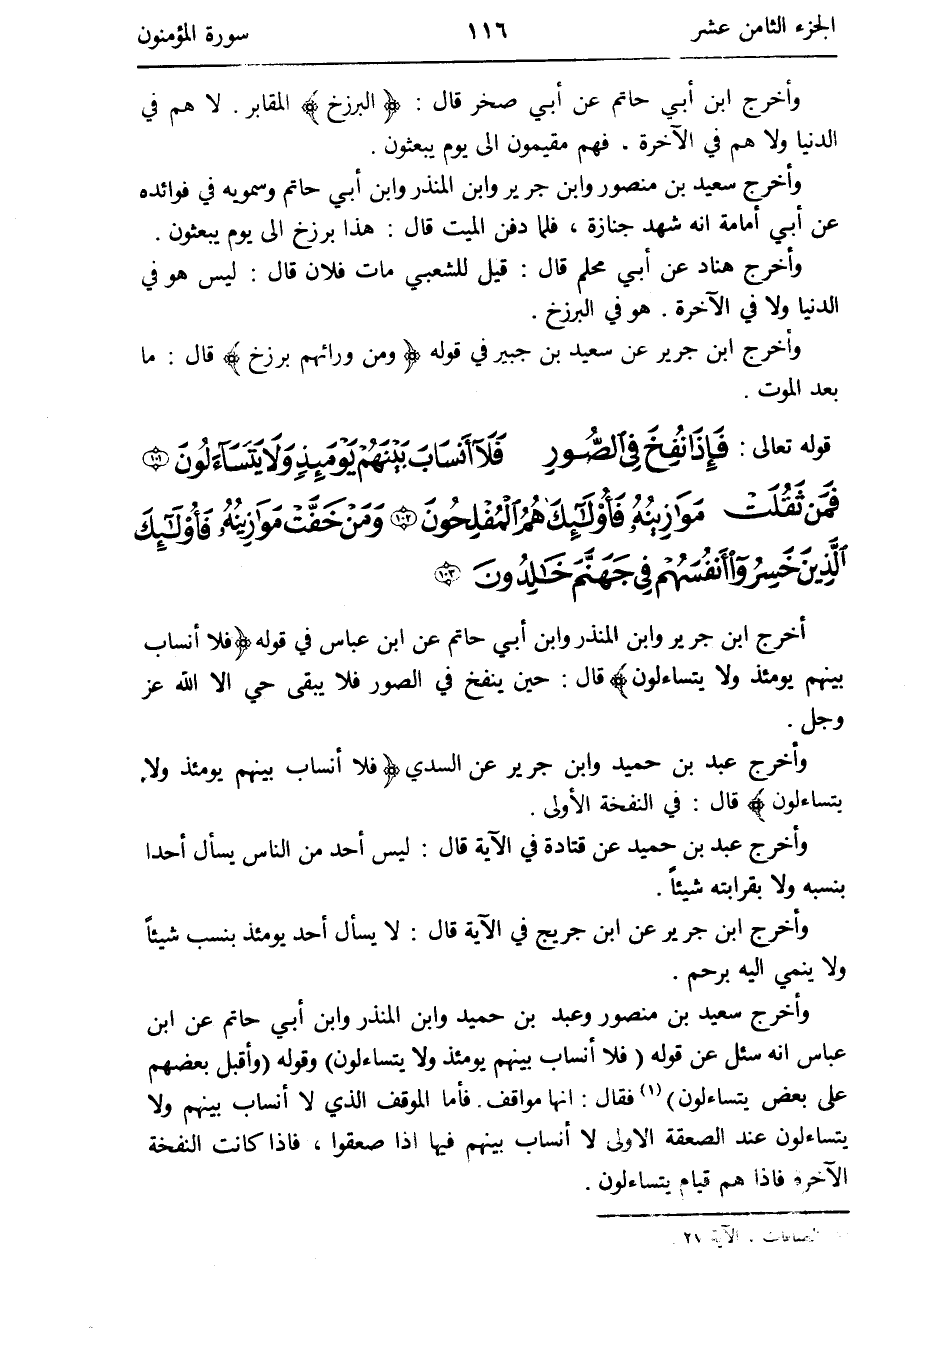 الجزء الثامن عشر ١١٦ سورة المؤمنون
وأخرج ابن أبي حاتم عن أبي صخر قال : ﴿ البرزخ ﴾ المقابر . لا هم في
الدنيا ولا هم في الآخرة . فهم مقيمون الى يوم يبعثون .
وأخرج سعيد بن منصور وابن جرير وابن المنذر وابن أبي حاتم وسمويه في فوائده
عن أبي أمامة انه شهد جنازة ، فلما دفن الميت قال : هذا برزخ الى يوم يبعثون .
وأخرج هناد عن أبي محلم قال : قيل للشعبي مات فلان قال : ليس هو في
الدنيا ولا في الآخرة . هو في البرزخ .
وأخرج ابن جرير عن سعيد بن جبير في قوله ﴿ ومن ورائهم برزخ ﴾ قال : ما
بعد الموت .
قوله تعالى : فَإِذَا نُفِخَ فِي ٱلصُّورِ فَلَآ أَنسَابَ بَيْنَهُمْ يَوْمَئِذٍ وَلَا يَتَسَآءَلُونَ ١٠١
فَمَن ثَقُلَتْ مَوَٰزِينُهُۥ فَأُو۟لَٰٓئِكَ هُمُ ٱلْمُفْلِحُونَ ١٠٢ وَمَنْ خَفَّتْ مَوَٰزِينُهُۥ فَأُو۟لَٰٓئِكَ
ٱلَّذِينَ خَسِرُوٓا۟ أَنفُسَهُمْ فِي جَهَنَّمَ خَٰلِدُونَ ١٠٣
أخرج ابن جرير وابن المنذر وابن أبي حاتم عن ابن عباس في قوله ﴿ فلا أنساب
بينهم يومئذ ولا يتساءلون ﴾ قال : حين ينفخ في الصور فلا يبقى حي الا الله عز
وجل .
وأخرج عبد بن حميد وابن جرير عن السدي ﴿ فلا أنساب بينهم يومئذ ولا
يتساءلون ﴾ قال : في النفخة الأولى .
وأخرج عبد بن حميد عن قتادة في الآية قال : ليس أحد من الناس يسأل أحدا
بنسبه ولا بقرابته شيئاً .
وأخرج ابن جرير عن ابن جريج في الآية قال : لا يسأل أحد يومئذ بنسب شيئاً
ولا ينمي اليه برحم .
وأخرج سعيد بن منصور وعبد بن حميد وابن المنذر وابن أبي حاتم عن ابن
عباس انه سئل عن قوله ( فلا أنساب بينهم يومئذ ولا يتساءلون) وقوله (وأقبل بعضهم
على بعض يتساءلون)(١) فقال : انها مواقف . فأما الموقف الذي لا أنساب بينهم ولا
يتساءلون عند الصعقة الاولى لا أنساب بينهم فيها اذا صعقوا ، فاذا كانت النفخة
الآخرة فاذا هم قيام يتساءلون .
الآية ٢٧